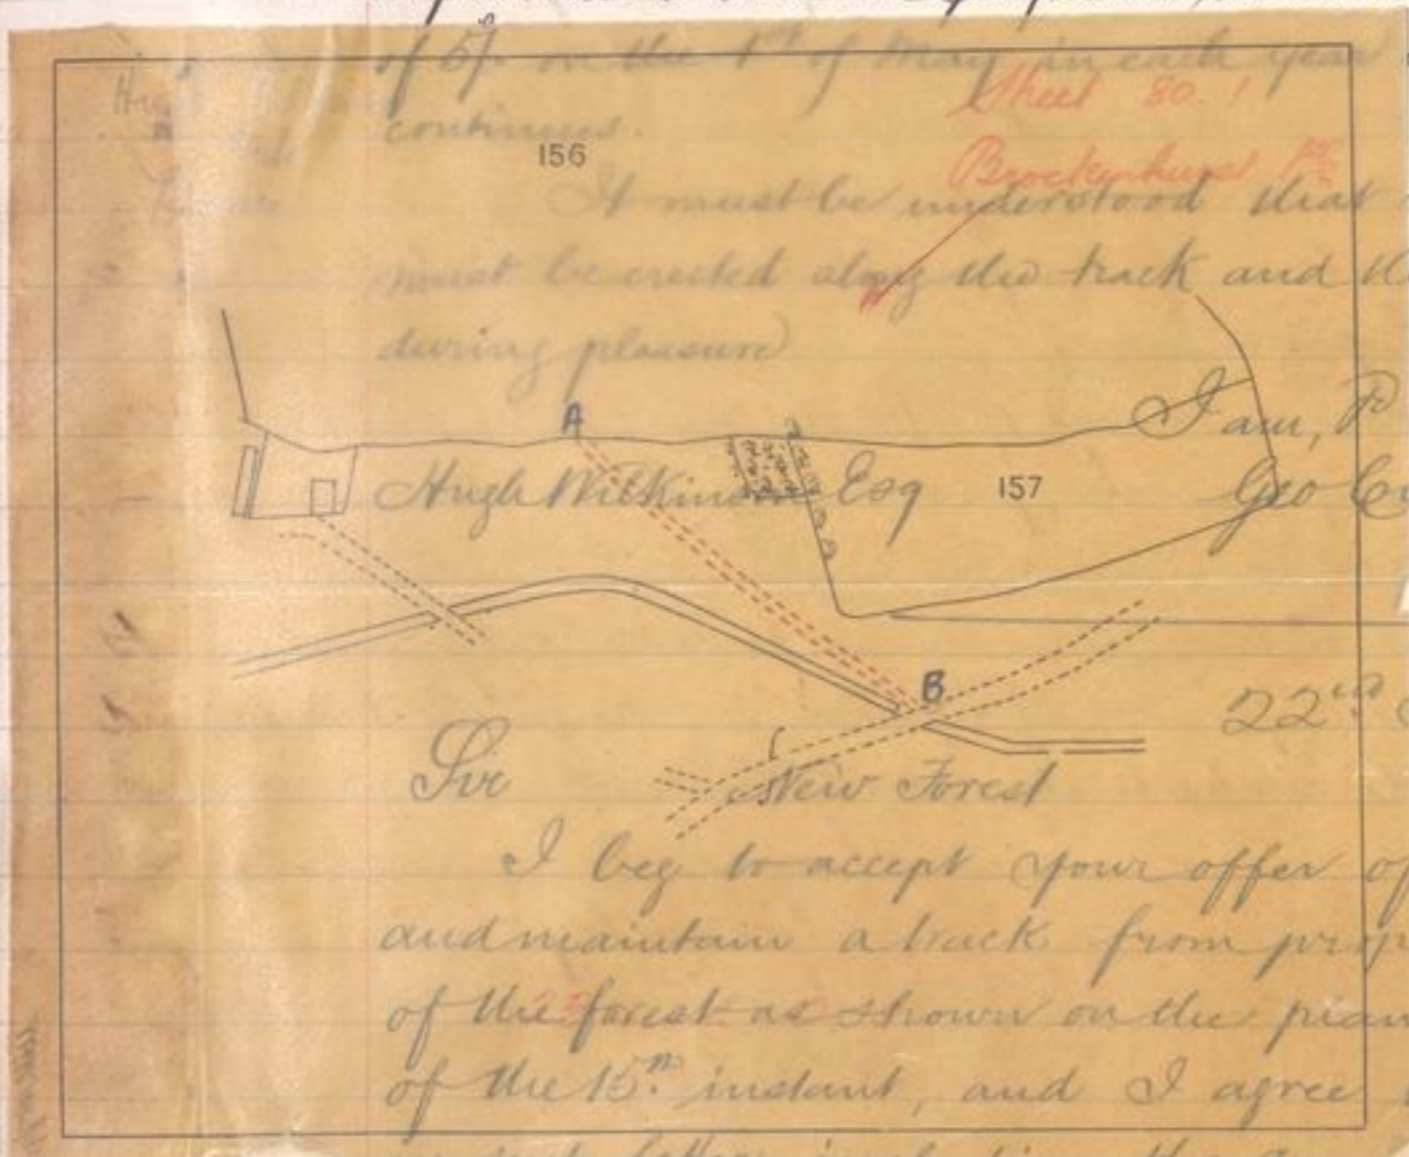 of 5/- on the 1st of May in each year
Sheet 80. 1
continues.
156
Brockenhurst
It must be understood that
must be erected along the track and th
during pleasure
A
I am,
Hugh Wilkinson Esq
157
Geo
B
22nd
Sir
New Forest
I beg to accept your offer of
and maintain a track from prop
of the forest as shown on the plan
of the 15th instant, and I agree